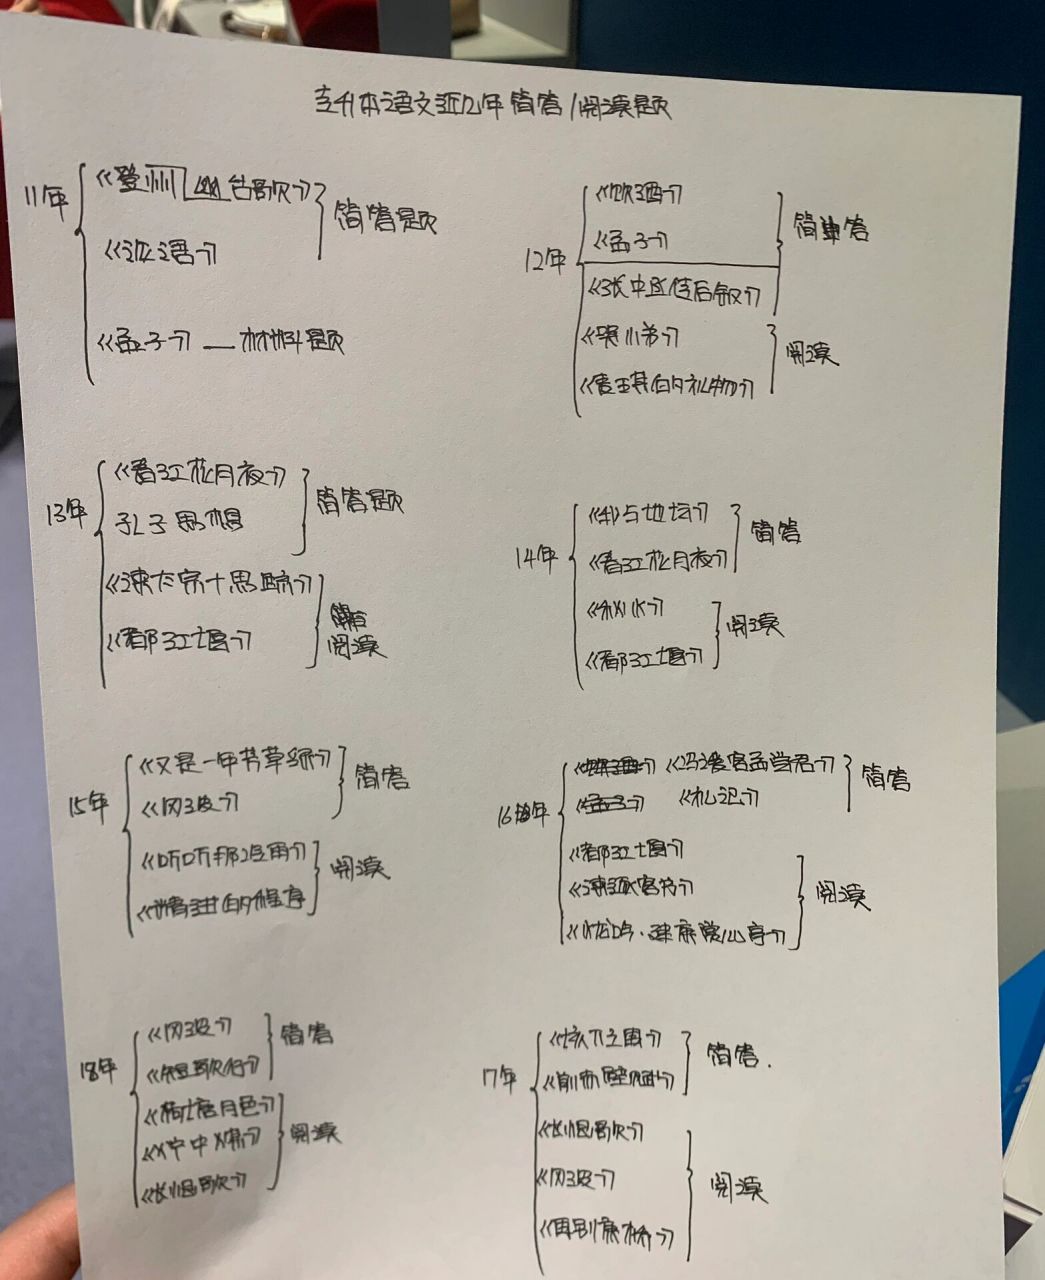 专升本语文近几年简答/阅读题
11年
《登州 台歌》
《论语》
简答题
《孟子》—材料题
12年
《饮酒》
《孟子》
《张中丞传后叙》
简答
《哭小弟》
《麦琪的礼物》
阅读
13年
《春江花月夜》
孔子思想
简答题
《谏太宗十思疏》
《都江堰》
阅读
14年
《我与地坛》
《春江花月夜》
简答
《秋水》
《都江堰》
阅读
15年
《又是一年芳草绿》
《风波》
简答
《听听那冷雨》
阅读
16年
《冯谖客孟尝君》
《礼记》
简答
《都江堰》
《谏逐客书》
《水龙吟·建康赏心亭》
阅读
18年
《风波》
《短歌行》
简答
《荷塘月色》
《长恨歌》
阅读
17年
《垓下之围》
《前赤壁赋》
简答.
《长恨歌》
《风波》
《再别康桥》
阅读